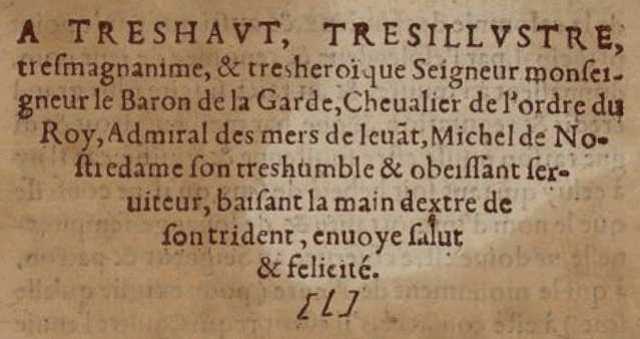 A TRESHAVT, TRESILLVSTRE,
treſmagnanime, & tresheroïque Seigneur monſei-
gneur le Baron de la Garde, Cheualier de l'ordre du
Roy, Admiral des mers de leuāt, Michel de No-
ſtredame ſon treshumble & obeiſſant ſer-
uiteur, baiſant la main dextre de
ſon trident, enuoye ſalut
& felicité.
[L]